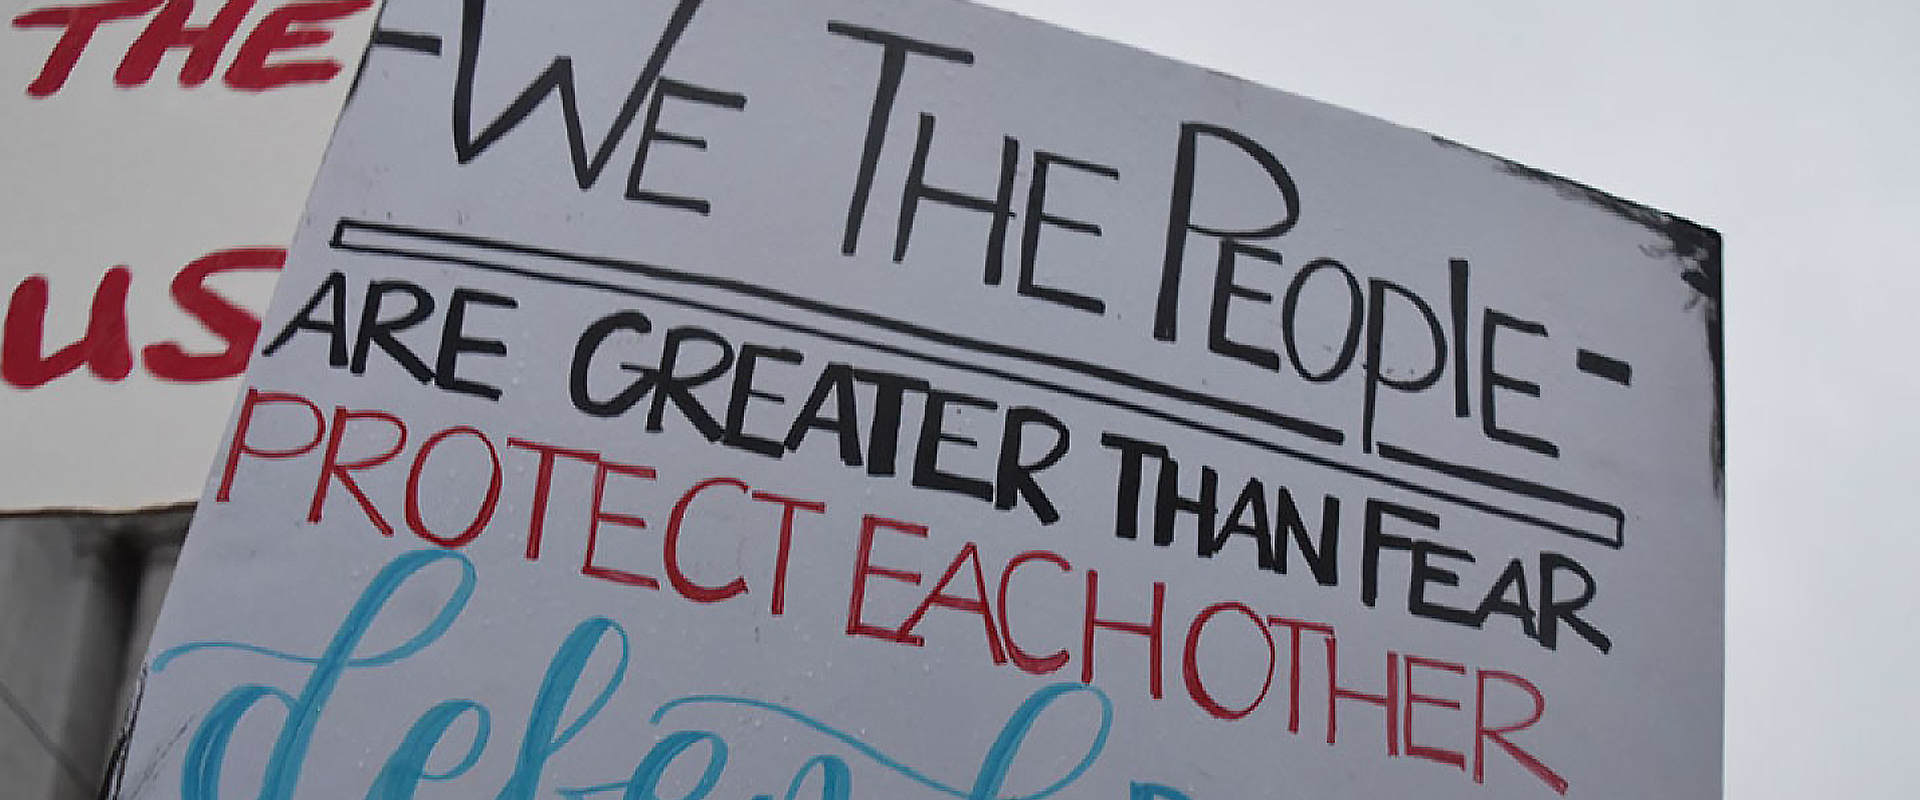 THE
US
-WE THE PEOPLE-
ARE GREATER THAN FEAR
PROTECT EACH OTHER
defend